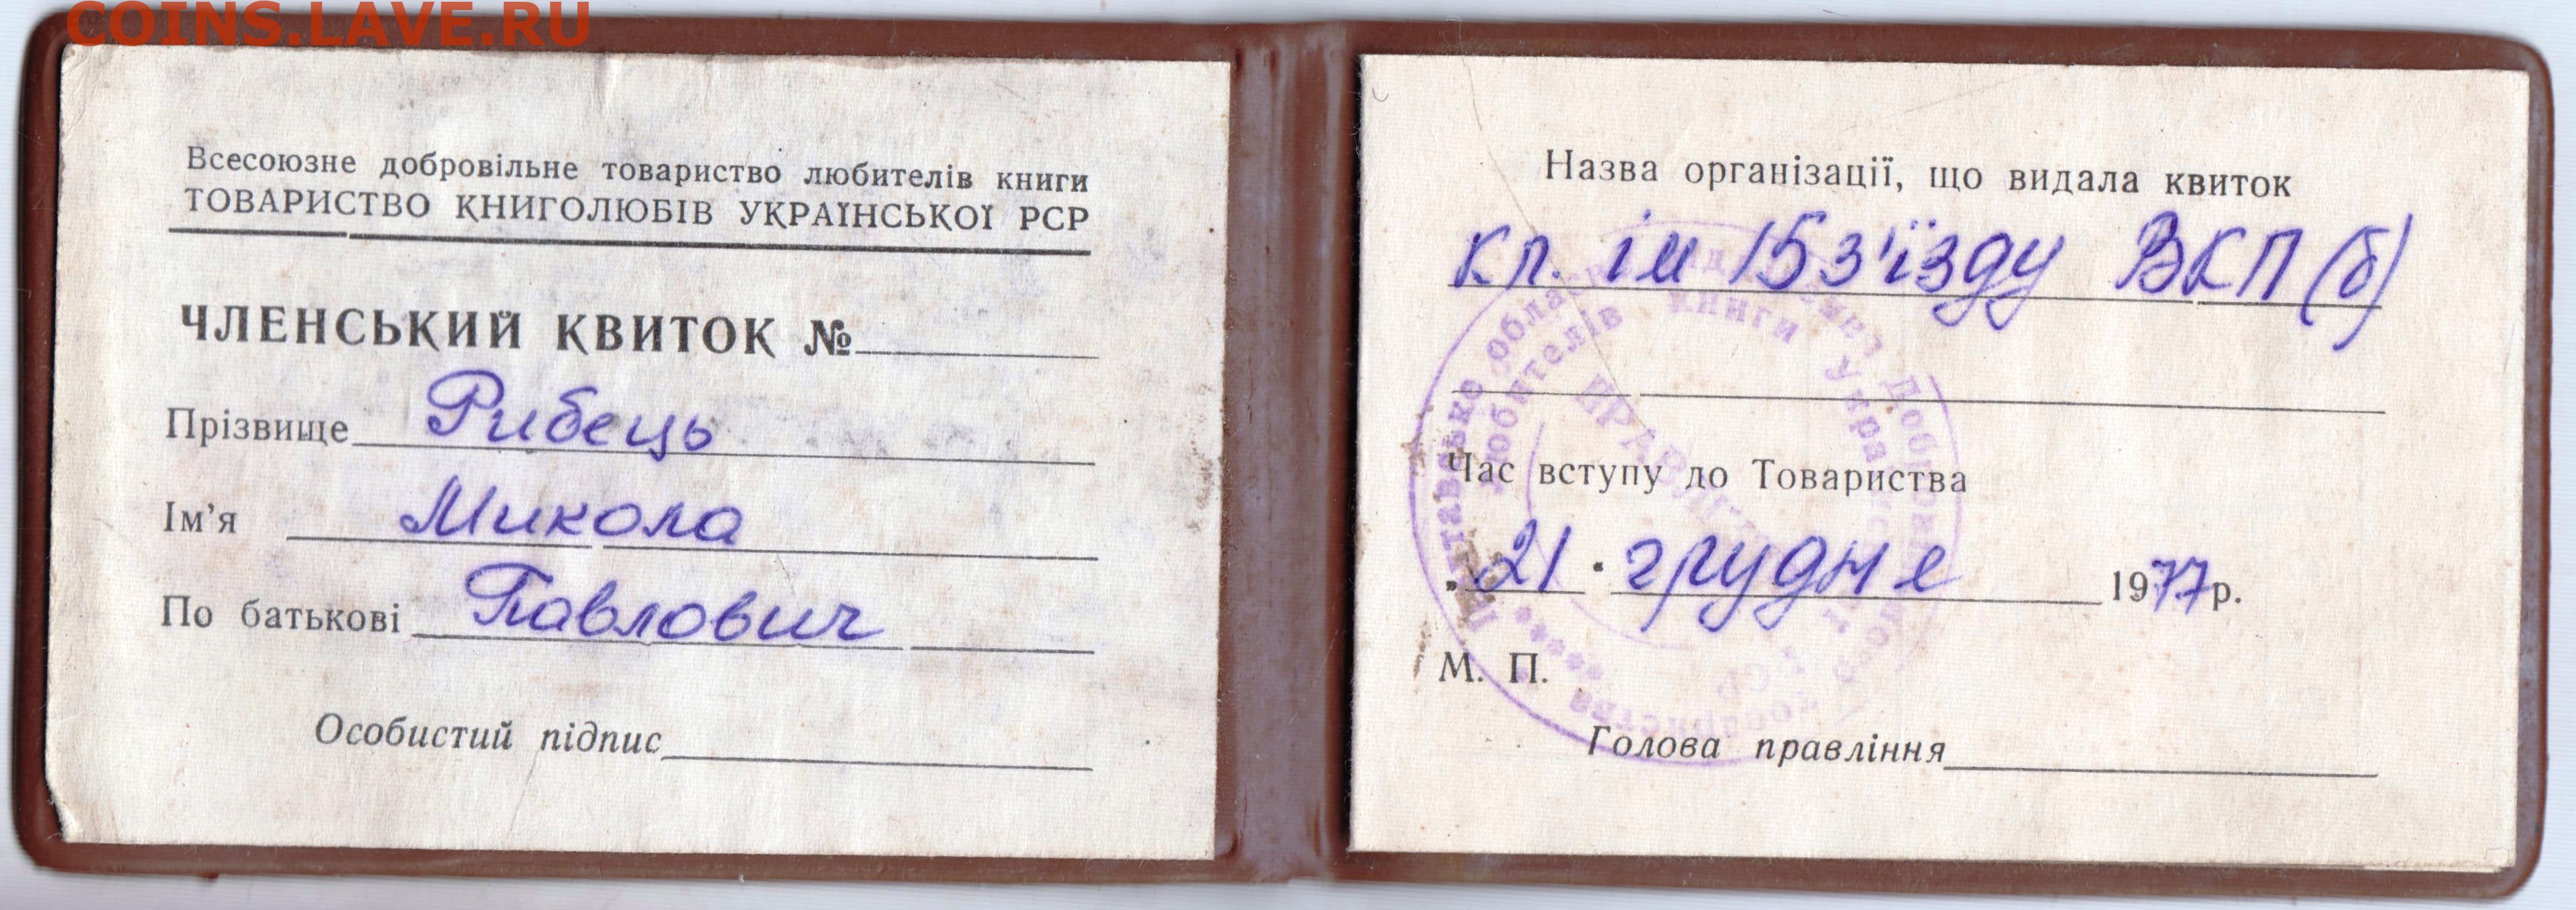 COINS.LAVE.RU
Всесоюзне добровільне товариство любителів книги
ТОВАРИСТВО КНИГОЛЮБІВ УКРАЇНСЬКОЇ РСР
ЧЛЕНСЬКИЙ КВИТОК №
Прізвище Рибець
Ім’я Микола
По батькові Павлович
Особистий підпис
Назва організації, що видала квиток
кл. ім 15 з'їзду ВКП(б)
Час вступу до Товариства
„21" грудня 1977 р.
М. П.
Голова правління
любителів книги